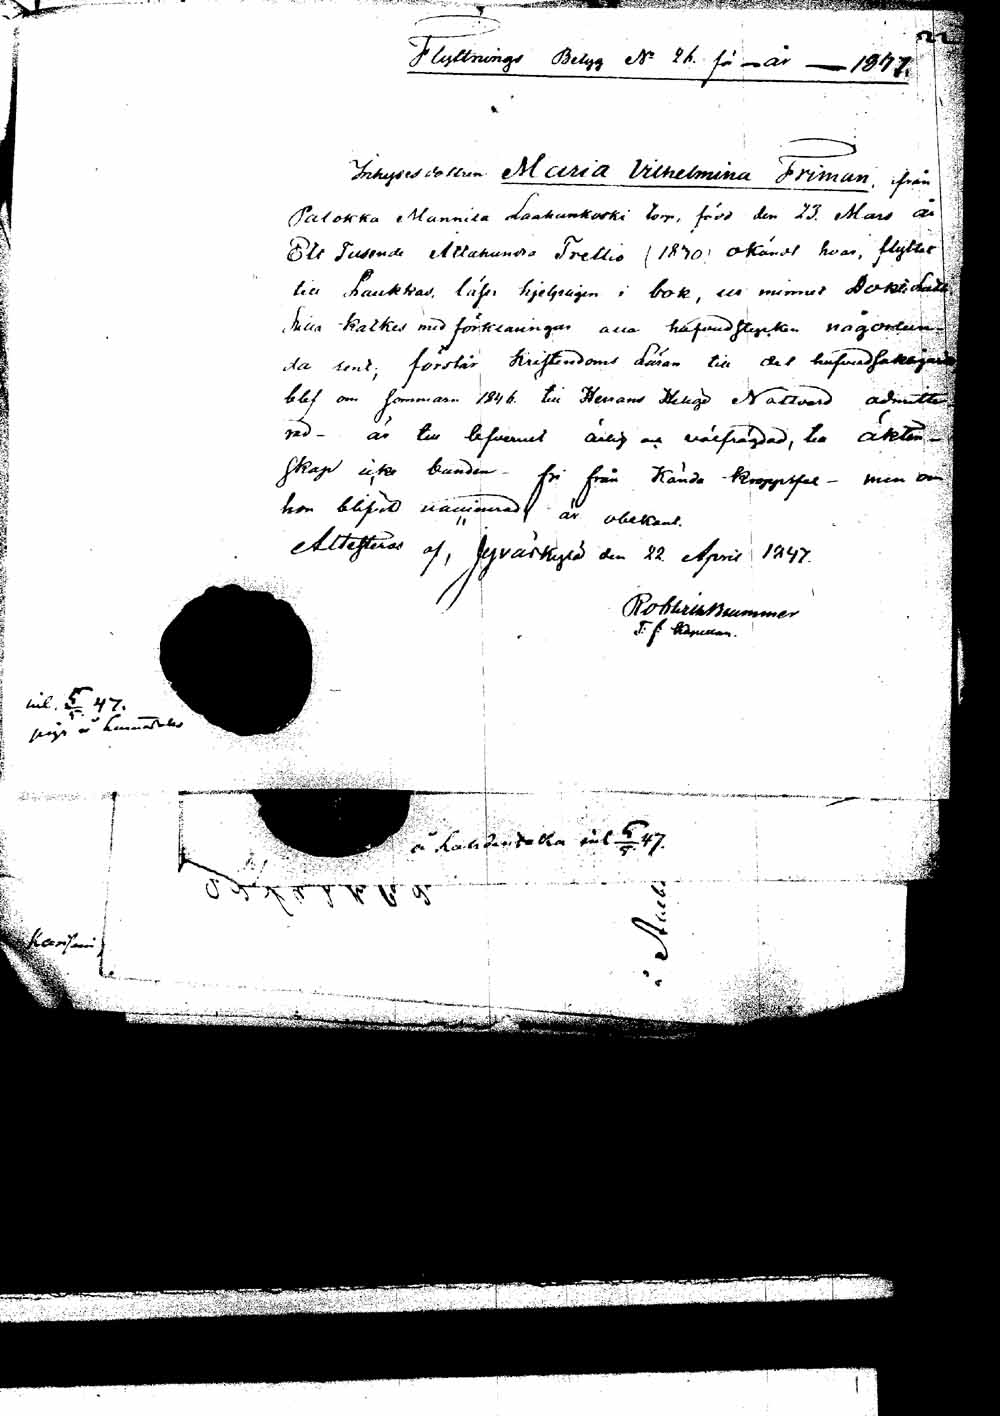 22
Flyttnings Betyg No 26. för år 1847.
Inhysesdottren Maria Vilhelmina Friman, från
Palokka Mannila Laahankoski torp, född den 23. Mars år
Ett Tusende Åttahundra Trettio (1830) okändt hvar, flyttar
till Laukkas, läser hjelpligen i bok, ur minnet Doct:
Lilla Katkes med förklaringar alla hufvudstycken någorlun-
da rent, förstår Kristendoms Läran till det hufvudsakligaste
blef om sommarn 1846. till Herrans Helige Nattvard admitte
rad - är till lefvernet ärlig och välfrägdad, till äkten-
skap icke bunden - fri från Kända kroppsfel - men om
hon blifvit vaccinerad är obekant.
Attesteras af, Jyväskylä den 22 April 1847.
Brummer
T. f. Kapellan.
inl. 5/5 47.
piga å
å inl 5/5 47.
å